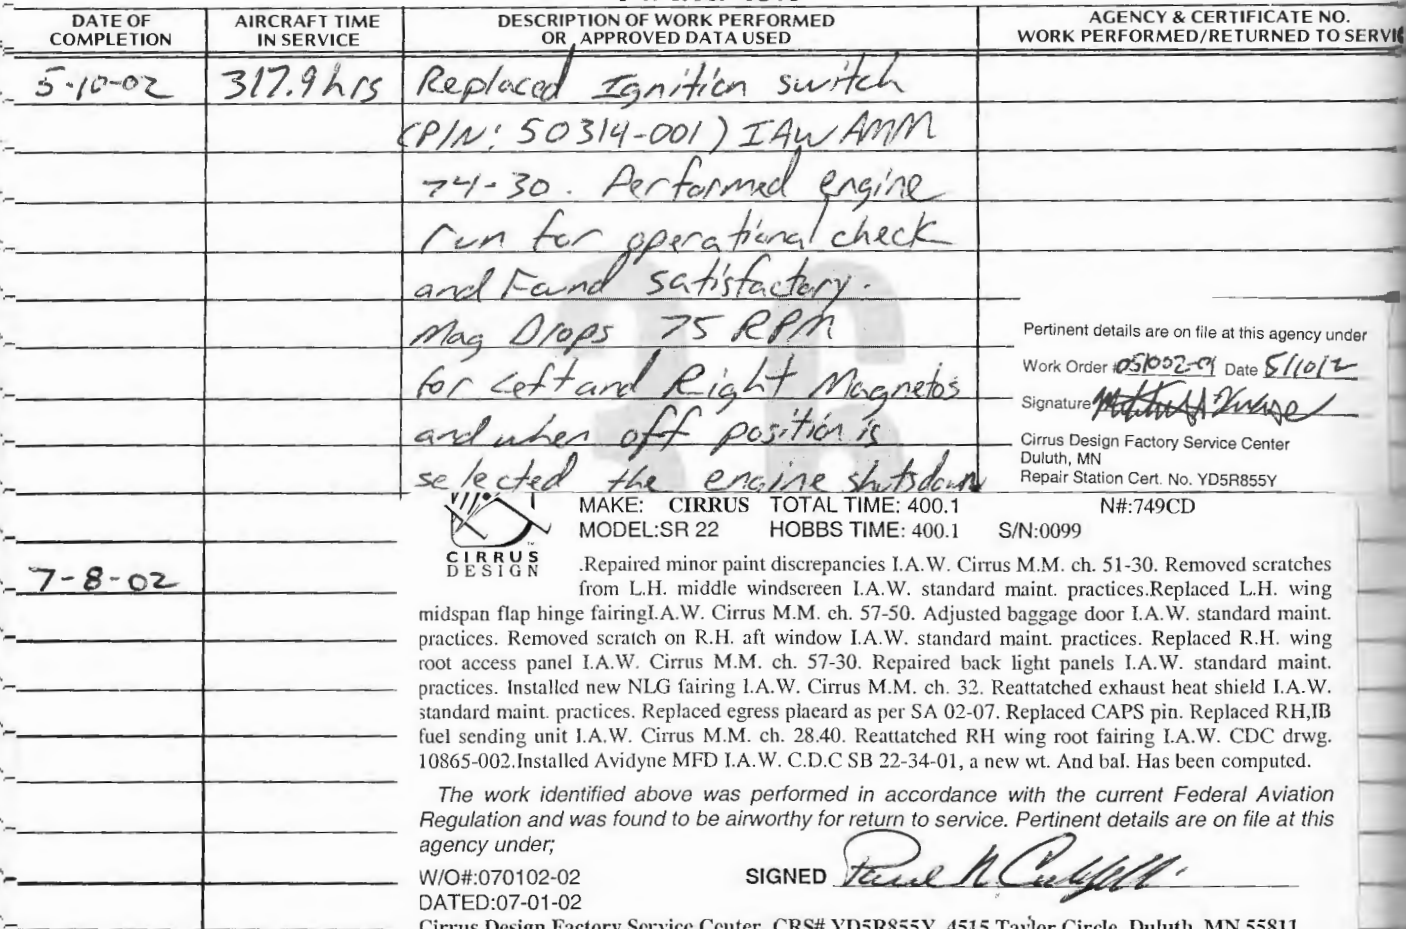 DATE OF COMPLETION
AIRCRAFT TIME IN SERVICE
DESCRIPTION OF WORK PERFORMED OR APPROVED DATA USED
AGENCY & CERTIFICATE NO. WORK PERFORMED/RETURNED TO SERVI
5-10-02 317.9 hrs Replaced Ignition switch
(P/N: 50314-001) IAW AMM
74-30. Performed engine
run for operational check
and Found satisfactory.
Mag Drops 75 RPM
for Left and Right Magnetos
and when off position is
selected the engine shutsdown
36
Pertinent details are on file at this agency under
Work Order 051002-01 Date 5/10/2
Signature
Cirrus Design Factory Service Center
Duluth, MN
Repair Station Cert. No. YD5R855Y
CIRRUS
DESIGN
MAKE: CIRRUS TOTAL TIME: 400.1 N#:749CD
MODEL:SR 22 HOBBS TIME: 400.1 S/N:0099
7-8-02
.Repaired minor paint discrepancies I.A.W. Cirrus M.M. ch. 51-30. Removed scratches
from L.H. middle windscreen I.A.W. standard maint. practices.Replaced L.H. wing
midspan flap hinge fairingI.A.W. Cirrus M.M. ch. 57-50. Adjusted baggage door I.A.W. standard maint.
practices. Removed scratch on R.H. aft window I.A.W. standard maint. practices. Replaced R.H. wing
root access panel I.A.W. Cirrus M.M. ch. 57-30. Repaired back light panels I.A.W. standard maint.
practices. Installed new NLG fairing I.A.W. Cirrus M.M. ch. 32. Reattatched exhaust heat shield I.A.W.
standard maint. practices. Replaced egress placard as per SA 02-07. Replaced CAPS pin. Replaced RH,IB
fuel sending unit I.A.W. Cirrus M.M. ch. 28.40. Reattatched RH wing root fairing I.A.W. CDC drwg.
10865-002.Installed Avidyne MFD I.A.W. C.D.C SB 22-34-01, a new wt. And bal. Has been computed.
The work identified above was performed in accordance with the current Federal Aviation
Regulation and was found to be airworthy for return to service. Pertinent details are on file at this
agency under;
W/O#:070102-02 SIGNED
DATED:07-01-02
Cirrus Design Factory Service Center, CRS# YD5R855Y, 4515 Taylor Circle, Duluth, MN 55811